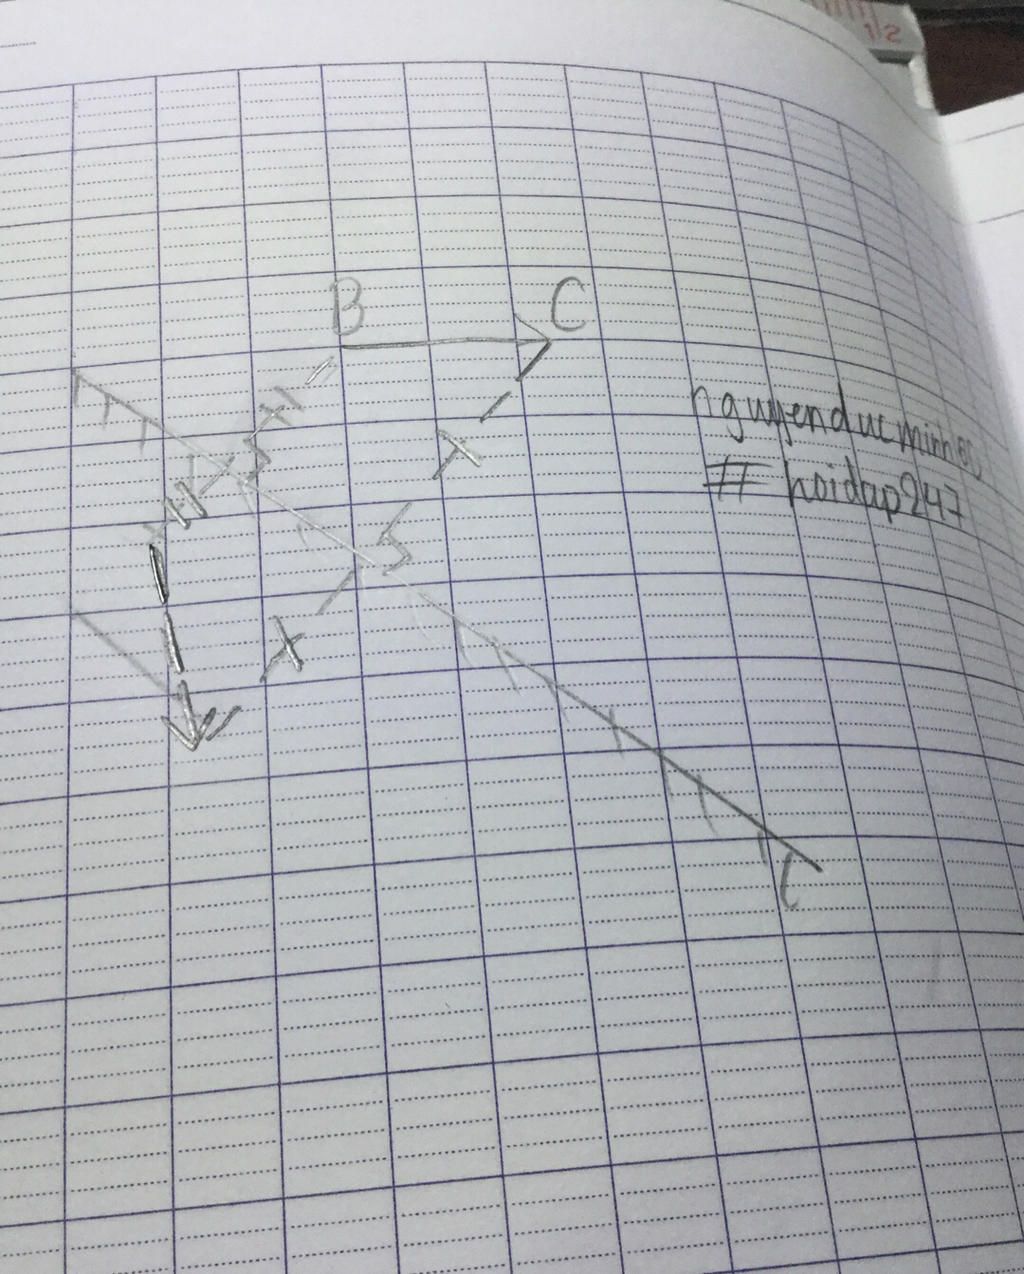 12
B C
nguyenducminh
# hoidap247